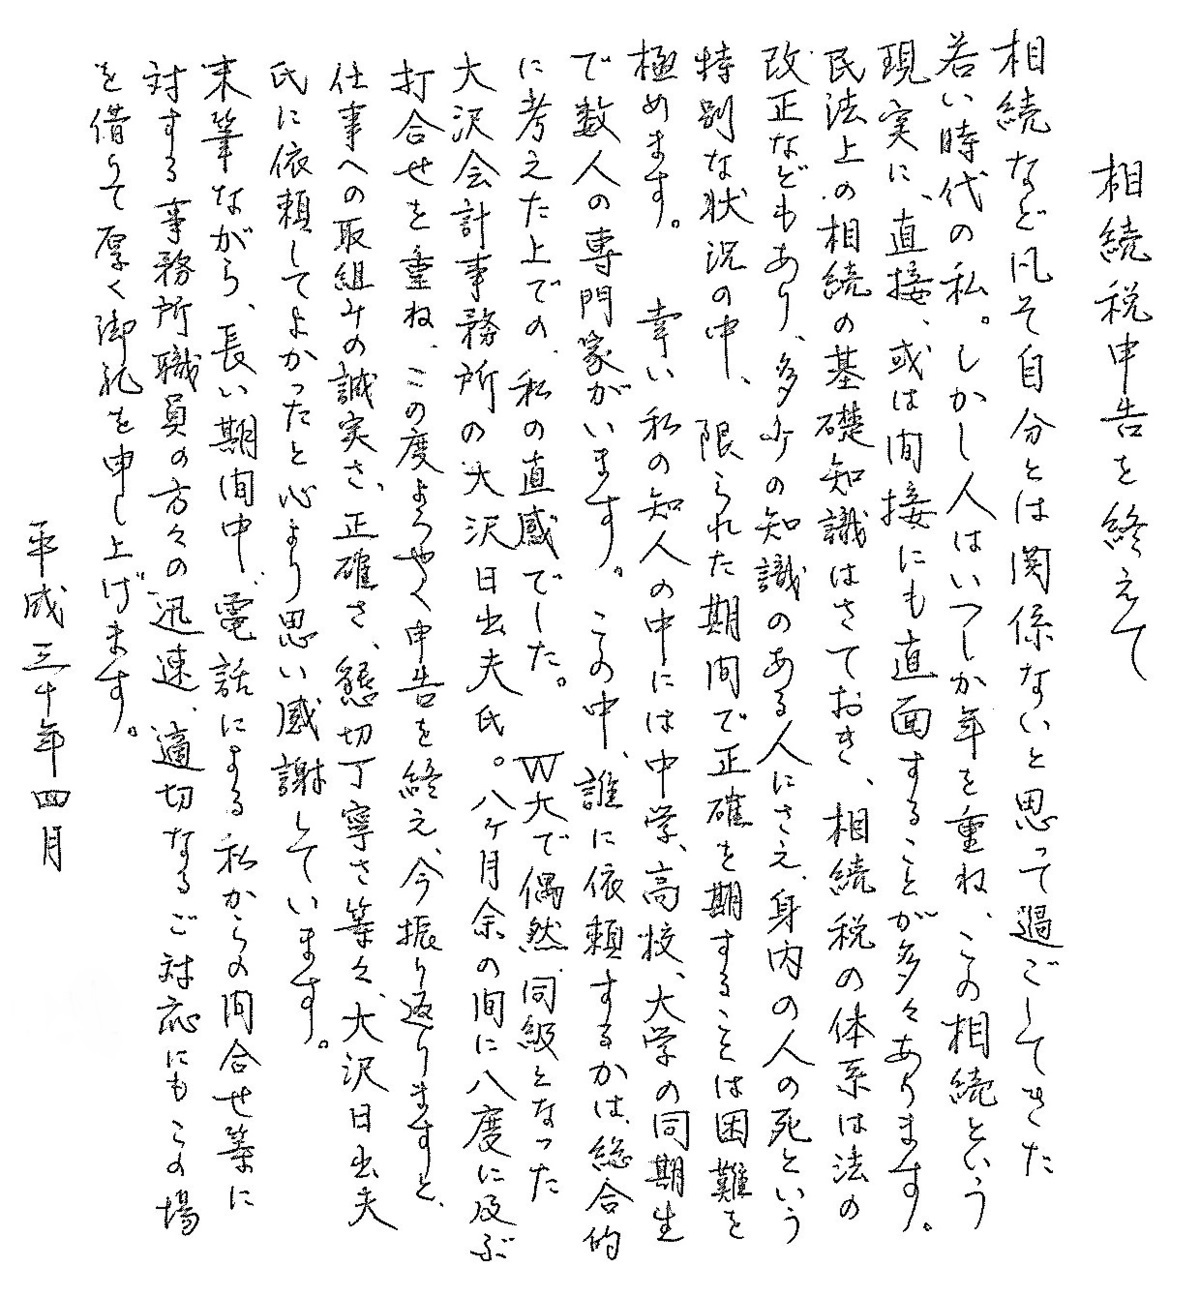 相続税申告を終えて
相続など凡そ自分とは関係ないと思って過ごしてきた
若い時代の私。しかし人はいつしか年を重ね、この相続という
現実に、直接、或は間接にも直面することが多々あります。
民法上の相続の基礎知識はさておき、相続税の体系は法の
改正などもあり、多少の知識のある人にさえ、身内の人の死という
特別な状況の中、限られた期間で正確を期することは困難を
極めます。 幸い私の知人の中には中学、高校、大学の同期生
で数人の専門家がいます。この中、誰に依頼するかは、総合的
に考えた上での、私の直感でした。W大で偶然、同級となった
大沢会計事務所の大沢日出夫氏。八ヶ月余の間に八度に及ぶ
打合せを重ね、この度ようやく申告を終え、今振り返りますと、
仕事への取組みの誠実さ、正確さ、懇切丁寧さ等々、大沢日出夫
氏に依頼してよかったと心より思い感謝しています。
末筆ながら、長い期間中、電話による私からの問合せ等に
対する事務所職員の方々の迅速、適切なるご対応にもこの場
を借りて厚く御礼を申し上げます。
平成三十年四月